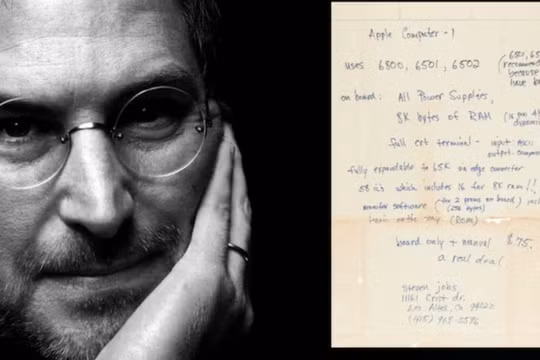 Apple Computer - 1
uses 6800, 6501, 6502
recommend
because
have
on board: All Power Supplies,
8K bytes of RAM (16 pin
full crt terminal - input ASCII
output
fully expandable to 65K via edge connector
58 ic's which includes 16 for 8K ram!!
monitor software (for 2 proms on board)
(256 bytes)
basic on the way (ROM)
board only + manual $75.
a real deal
steven jobs
11161 Crist dr.
Los Altos, Ca 94022
(415) 968-3596